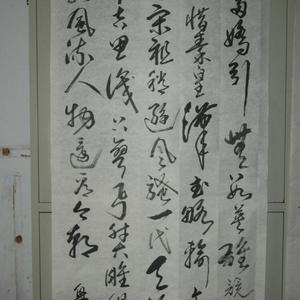 嬌引無數英雄競
惜秦皇漢武略輸
宋祖稍遜風騷一代天
吉思只彎弓射大雕
風流人物還看今朝